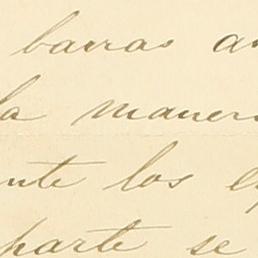 barras a
la maner
nte los e
parte se